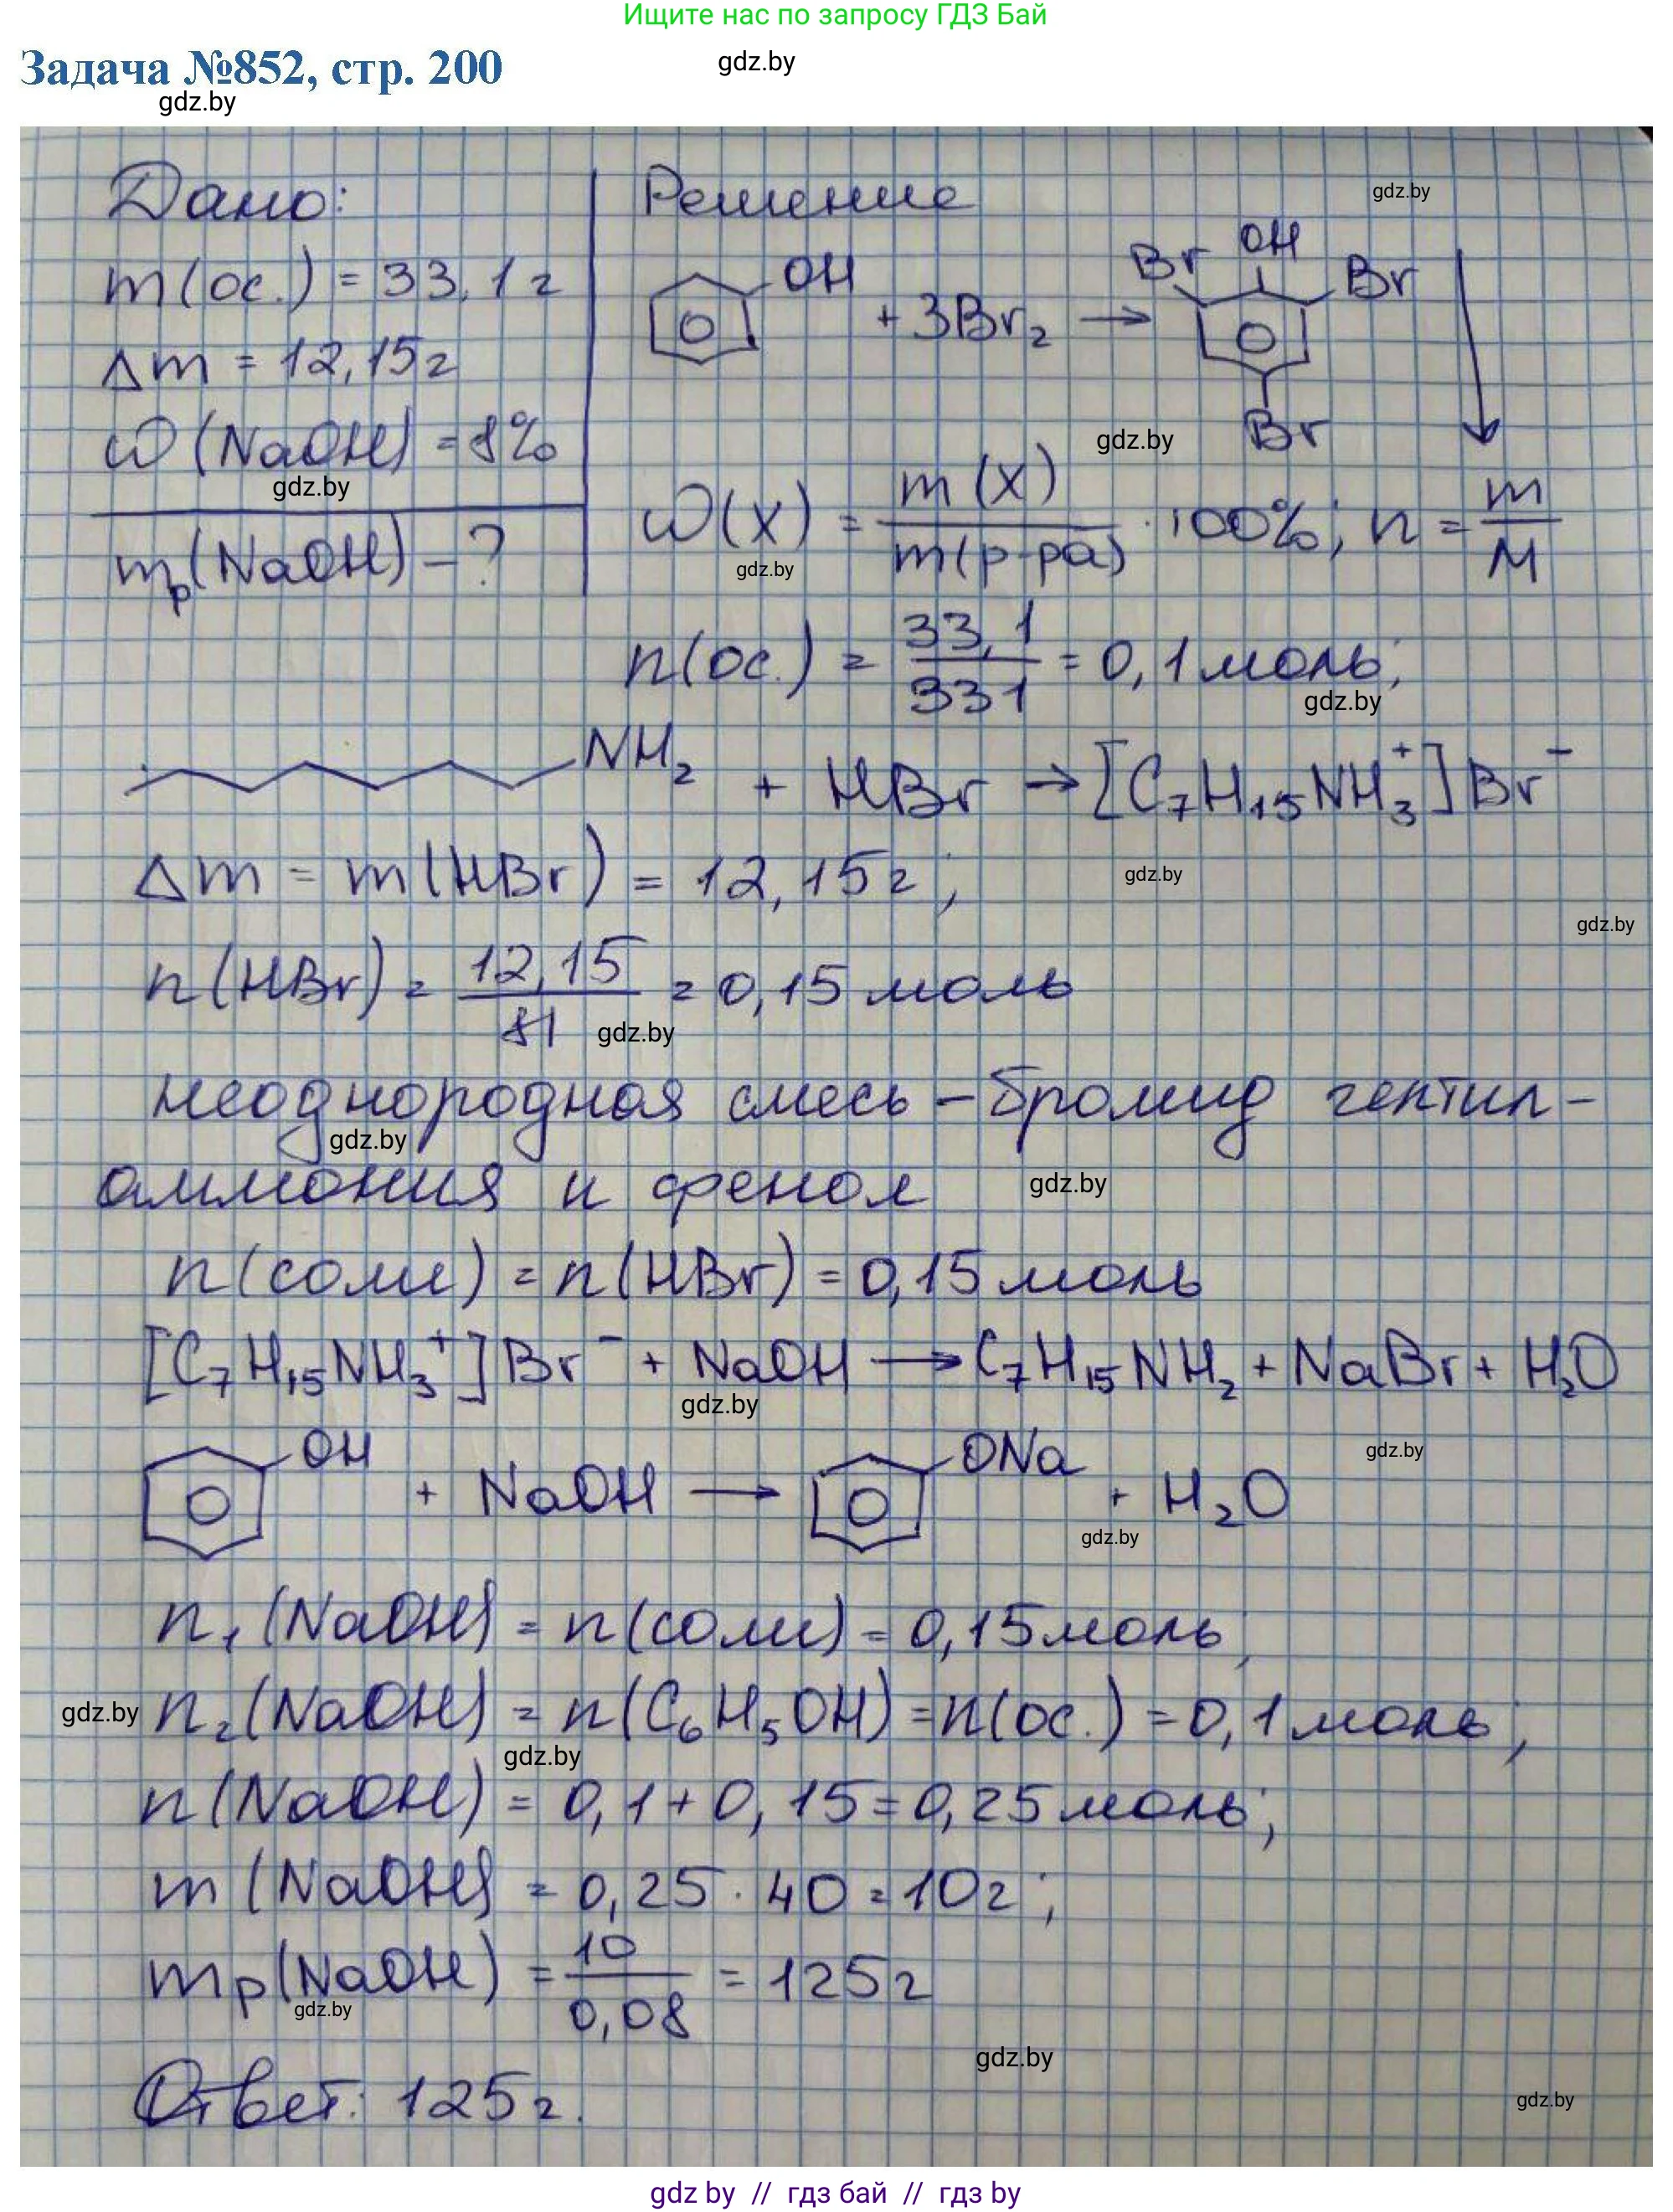 Ищите нас по запросу ГДЗ Бай
Задача №852, стр. 200
gdz.by
gdz.by
Дано:
m(ос.) = 33,1 г
Δm = 12,15 г
ω(NaOH) = 8%
gdz.by
mр(NaOH) – ?
Решение
gdz.by
OH
+ 3Br₂ →
Br OH Br
Br ↓
gdz.by
ω(X) = m(X) / m(р-ра) · 100%; n = m / M
gdz.by
n(ос.) = 33,1 / 331 = 0,1 моль;
gdz.by
NH₂ + HBr → [C₇H₁₅NH₃⁺]Br⁻
Δm = m(HBr) = 12,15 г;
gdz.by
gdz.by
n(HBr) = 12,15 / 81 = 0,15 моль
gdz.by
неоднородная смесь – бромид гептил-
gdz.by
аммония и фенол
gdz.by
n(соли) = n(HBr) = 0,15 моль
[C₇H₁₅NH₃⁺]Br⁻ + NaOH → C₇H₁₅NH₂ + NaBr + H₂O
gdz.by
OH + NaOH → ONa + H₂O
gdz.by
gdz.by
n₁(NaOH) = n(соли) = 0,15 моль;
gdz.by
n₂(NaOH) = n(C₆H₅OH) = n(ос.) = 0,1 моль;
gdz.by
n(NaOH) = 0,1 + 0,15 = 0,25 моль;
m(NaOH) = 0,25 · 40 = 10 г;
mр(NaOH) = 10 / 0,08 = 125 г
gdz.by
gdz.by
Ответ: 125 г.
gdz.by
gdz by // гдз бай // гдз by